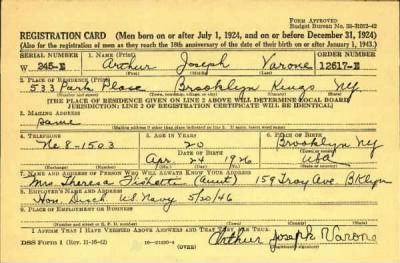 FORM APPROVED
REGISTRATION CARD (Men born on or after July 1, 1924, and on or before December 31, 1924)
(Also for the registration of men as they reach the 18th anniversary of the date of their birth on or after January 1, 1943.)
SERIAL NUMBER 1. NAME (Print) ORDER NUMBER
W 245-E Arthur Joseph Varone 12617-E
(First) (Middle) (Last)
2. PLACE OF RESIDENCE (Print)
533 Park Place Brooklyn Kings NY.
(Number and street) (Town, township, village, or city) (County) (State)
[THE PLACE OF RESIDENCE GIVEN ON LINE 2 ABOVE WILL DETERMINE LOCAL BOARD
JURISDICTION; LINE 2 OF REGISTRATION CERTIFICATE WILL BE IDENTICAL]
3. MAILING ADDRESS
Same
4. TELEPHONE 5. AGE IN YEARS 6. PLACE OF BIRTH
8-1503 20 Brooklyn NY
DATE OF BIRTH
Apr. 24 1926 USA
(Exchange) (Number) (Mo.) (Day) (Yr.) (State or country)
7. NAME AND ADDRESS OF PERSON WHO WILL ALWAYS KNOW YOUR ADDRESS
Mrs. Theresa (Aunt) 159 Troy Ave. BKlyn
8. EMPLOYER'S NAME AND ADDRESS
Hon. Disch. US. Navy 5/20/46
9. PLACE OF EMPLOYMENT OR BUSINESS
(Number and street or R. F. D. number) (Town) (County) (State)
I AFFIRM THAT I HAVE VERIFIED ABOVE ANSWERS AND THAT THEY ARE TRUE.
DSS Form 1 (OVER) Arthur Joseph Varone